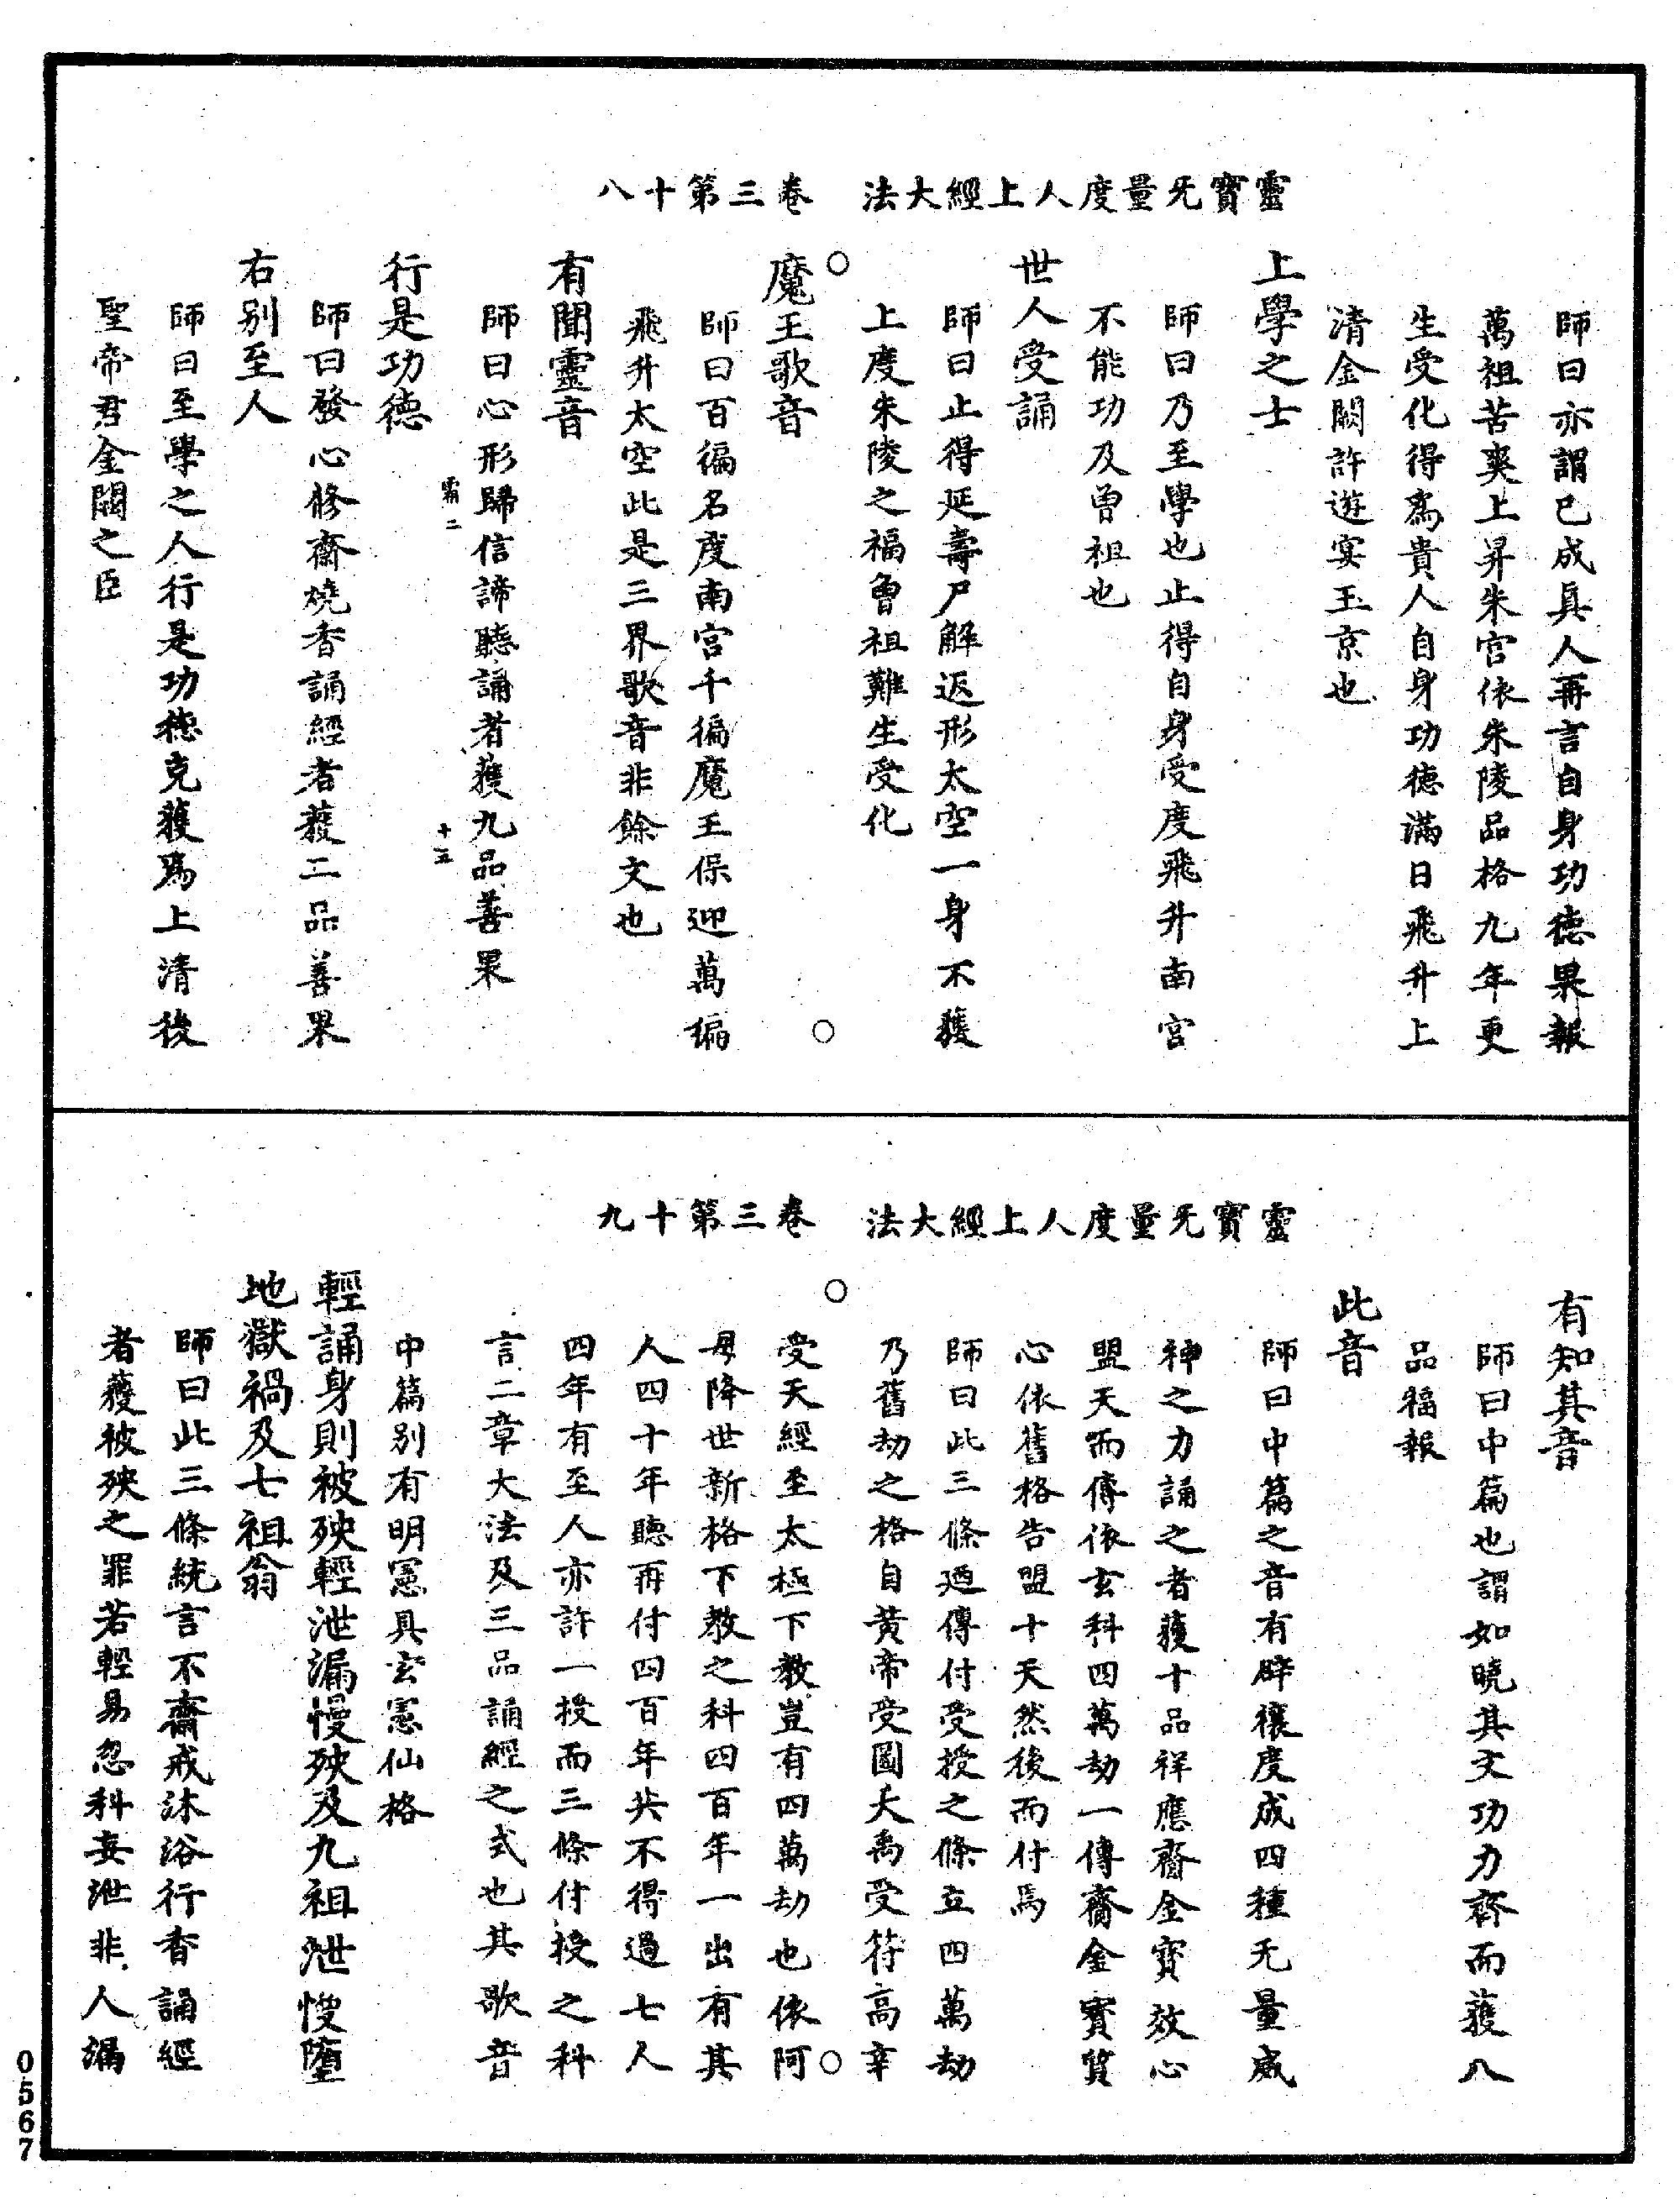 靈寶无量度人上經大法　卷三第十八
師曰亦謂已成真人再言自身功德果報
萬祖苦爽上昇朱宮依朱陵品格九年更
生受化得為貴人自身功德滿日飛升上
清金闕許遊宴玉京也
上學之士
師曰乃至學也止得自身受度飛升南宮
不能功及曾祖也
世人受誦
師曰止得延壽尸解返形太空一身不獲
上度朱陵之福曾祖難生受化
○
○
魔王歌音
師曰百徧名度南宮千徧魔王保迎萬徧
飛升太空此是三界歌音非餘文也
有聞靈音
師曰心形歸信諦聽誦者獲九品善果
霜二
十五
行是功德
師曰發心修齋燒香誦經者獲二品善果
右別至人
師曰至學之人行是功德克獲為上清後
聖帝君金闕之臣
靈寶无量度人上經大法　卷三第十九
有知其音
師曰中篇也謂如曉其文功力齊而獲八
品福報
此音
師曰中篇之音有辟禳度成四種无量威
神之力誦之者獲十品祥應齎金寶效心
盟天而傳依玄科四萬劫一傳齎金寶質
心依舊格告盟十天然後而付焉
師曰此三條迺傳付受授之條立四萬劫
乃舊劫之格自黃帝受圖大禹受符高辛
○
○
受天經至太極下教豈有四萬劫也依阿
母降世新格下教之科四百年一出有其
人四十年聽再付四百年共不得過七人
四年有至人亦許一授而三條付授之科
言二章大法及三品誦經之式也其歌音
中篇別有明憲具玄憲仙格
輕誦身則被殃輕泄漏慢殃及九祖泄慢墮
地獄禍及七祖翁
師曰此三條統言不齋戒沐浴行香誦經
者獲被殃之罪若輕易忽科妄泄非人漏
0567